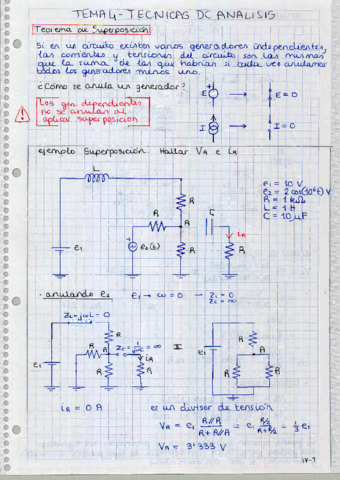 TEMA 4 - TECNICAS DC ANALISIS
Teorema de Superposición
Si en un circuito existen varios generadores independientes,
las corrientes y tensiones del circuito son las mismas
que la suma de las que habrían si cada vez anulamos
todos los generadores menos uno.
¿Cómo se anula un generador?
E
E = 0
Los gen. dependientes
no se anulan al
aplicar superposición
I
I = 0
ejemplo Superposición Hallar VA e iR
L
R
R
A
C
iR
e1
e2(t)
R
R
e1 = 10 V
e2 = 2 cos(10⁴t) V
R = 1 kΩ
L = 1 H
C = 10 μF
· anulando e2
e1 → ω = 0 → ZL = 0
ZC = ∞
ZL = jωL = 0
R
A
R
ZC = = ∞
iR
e1
R
R
≡
e1
R
A
R
R
iR = 0 A
es un divisor de tensión
VA = e1 R//R / R + R//R = e1 R/2 / R + R/2 = 1/3 e1
VA = 3'333 V
IV-1